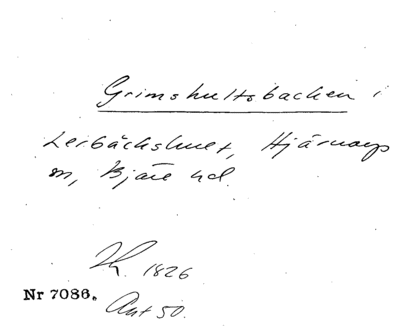 Grimshultsbacken i
Lerbäckshult, Hjärnarps
sn, Bjäre hd.
Lh. 1826
Nr 7086.
Ant 50.